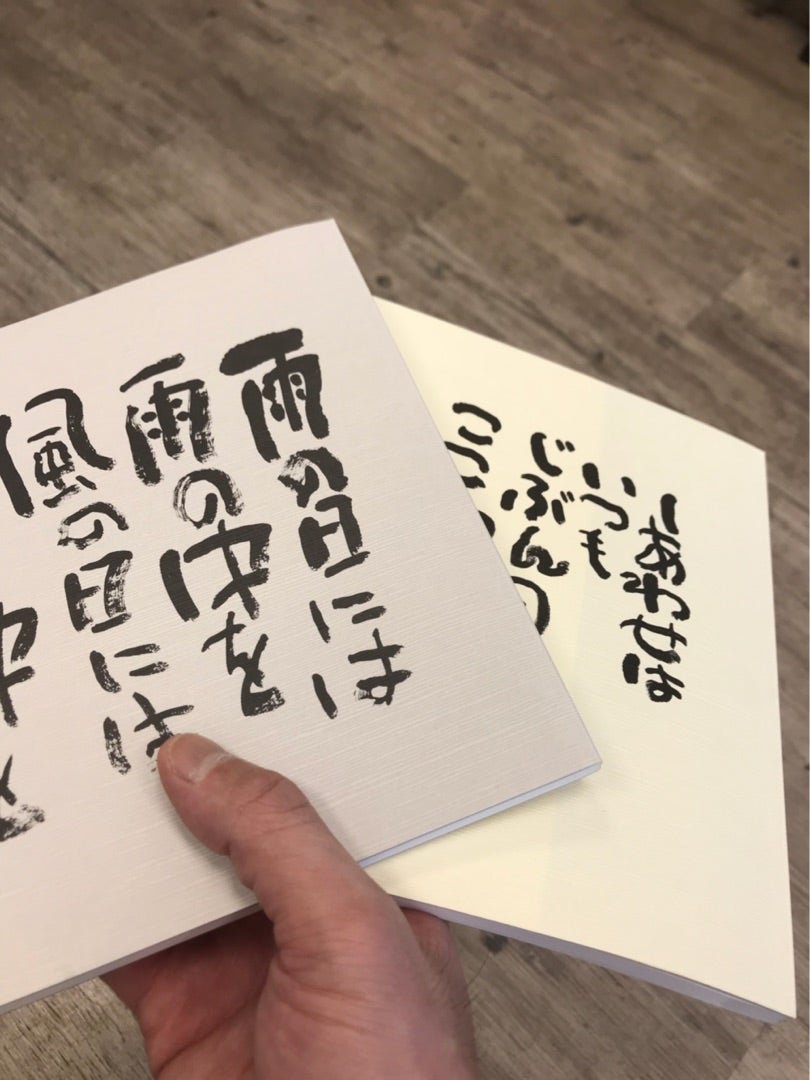 雨の日には
雨の中を
風の日には
中を
しあわせは
いつも
じぶんの
ここ